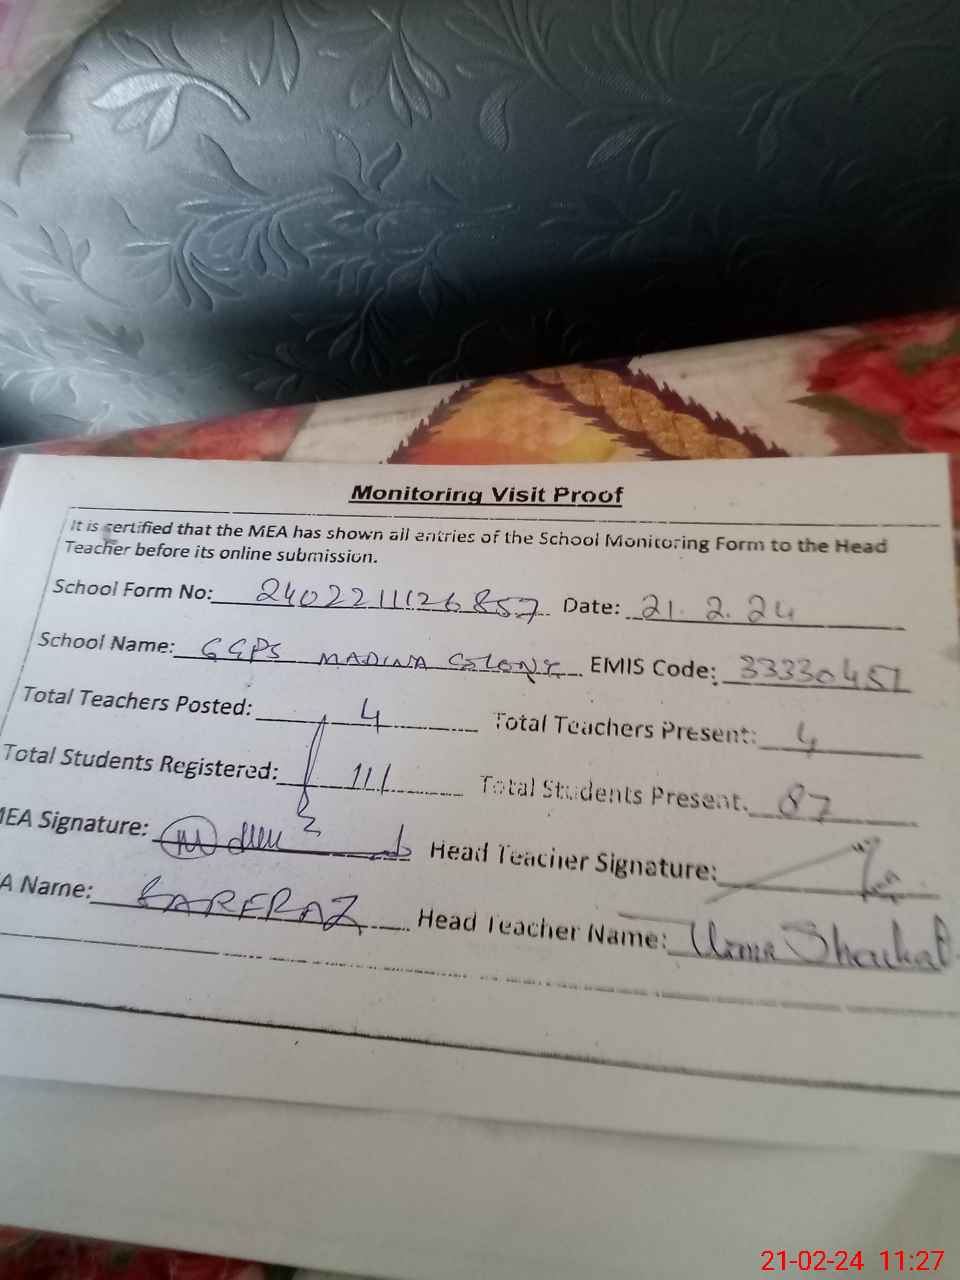 Monitoring Visit Proof
It is certified that the MEA has shown all entries of the School Monitoring Form to the Head
Teacher before its online submission.
School Form No: 240221126857 Date: 21.2.24
School Name: GGPS MADINA COLONY EMIS Code: 33330451
Total Teachers Posted: 4 Total Teachers Present: 4
Total Students Registered: 111 Total Students Present: 87
MEA Signature: Head Teacher Signature:
A Name: SARFRAZ Head Teacher Name: Uzma Shaukat
21-02-24 11:27